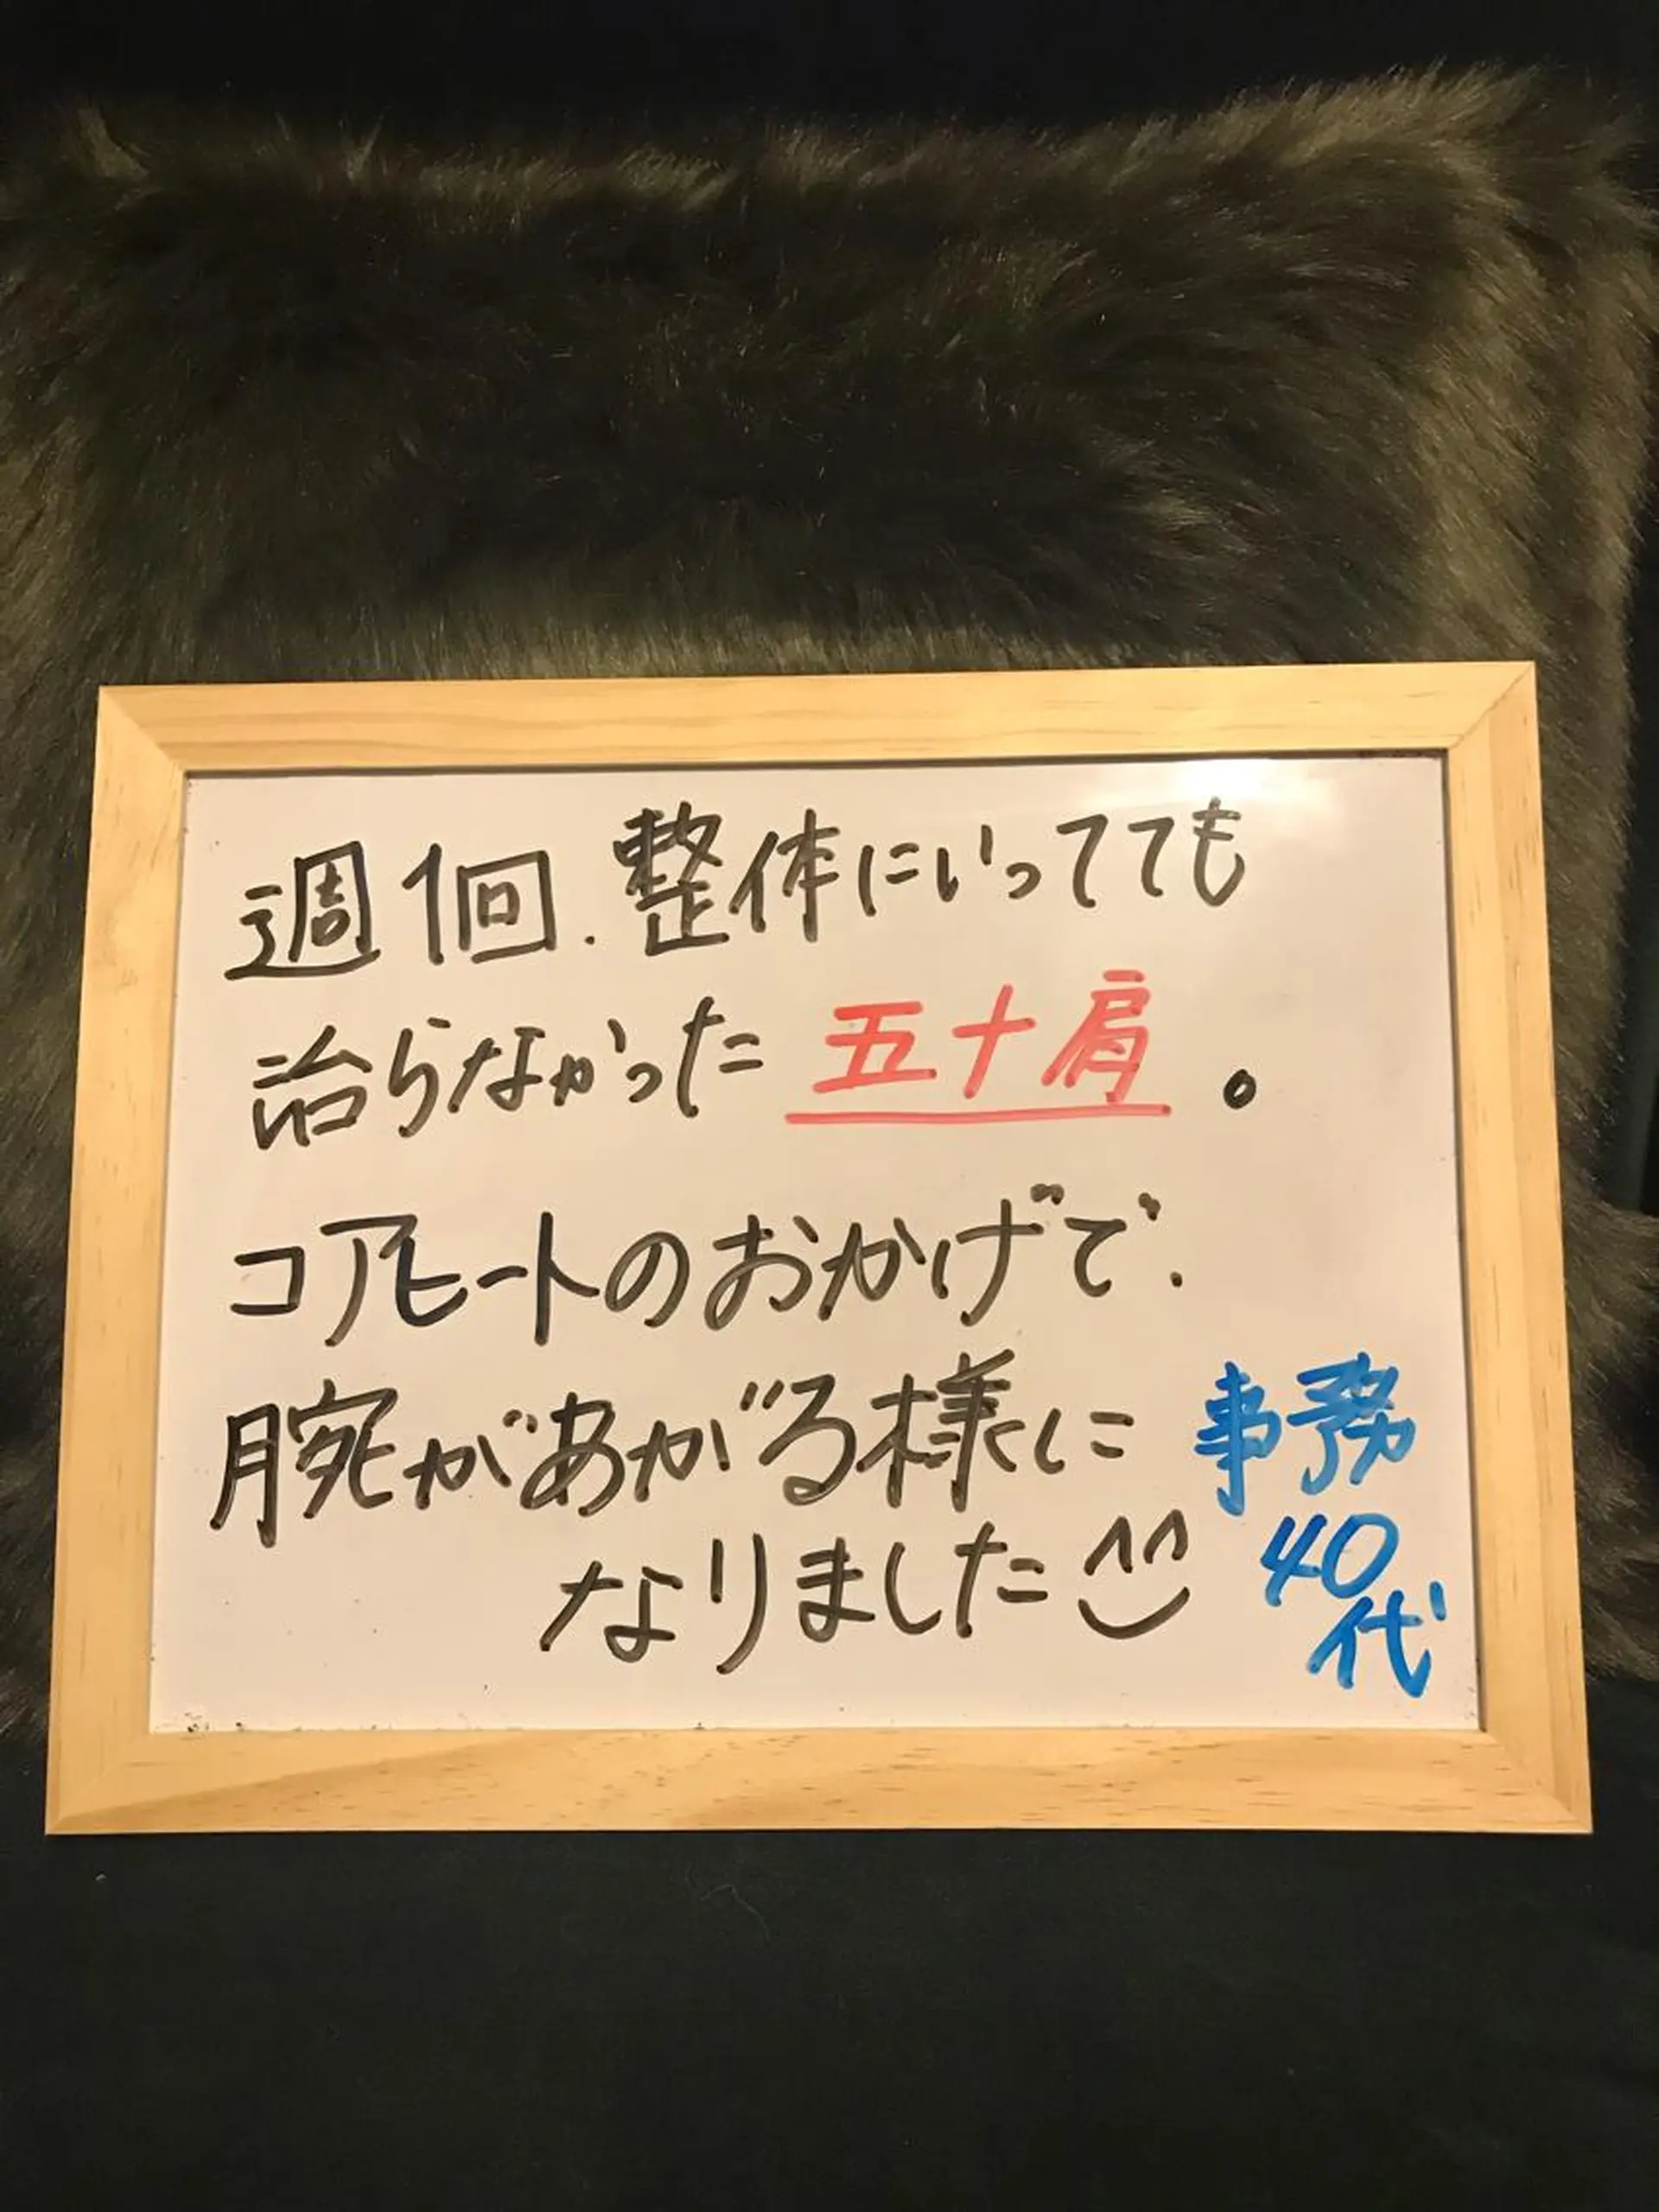 週1回.整体にいってても
治らなかった五十肩。
コアヒートのおかげで.
腕があがる様に
なりました^^
事務
40
代